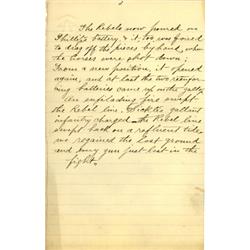 The Rebels now poured on
Phillip's battery, & it, too was forced
to drag off the pieces by hand, when
the horses were shot down;
From a new position, it opened
again, and at last the two reinfor-
cing batteries came up on the gallop.
An enfilading fire swept
the Rebel line. Sickles gallant
infantry charged – the Rebel line
swept back on a refluent tide,
we regained the lost ground
and every gun just lost in the
fight.